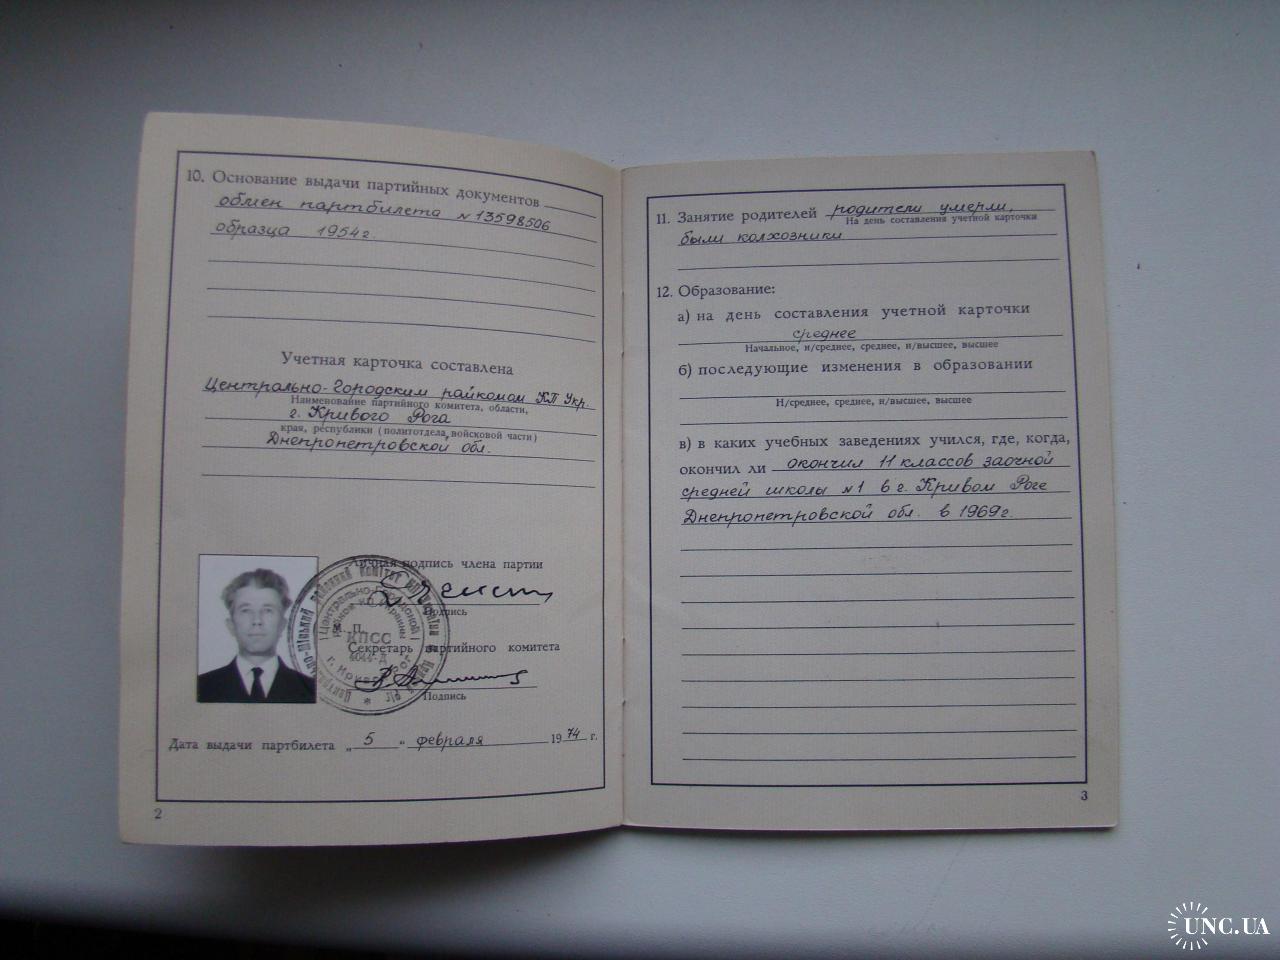 10. Основание выдачи партийных документов
обмен партбилета №13598506
образца 1954г.
Учетная карточка составлена
Центрально-Городским райкомом КП Укр.
Наименование партийного комитета, области,
г. Кривого Рога
края, республики (политотдела, войсковой части)
Днепропетровской обл.
Личная подпись члена партии
Подпись
М. П.
КПСС
Секретарь партийного комитета
Подпись
Дата выдачи партбилета „ 5 “ февраля 1974 г.
2
11. Занятие родителей родители умерли,
На день составления учетной карточки
были колхозники
12. Образование:
а) на день составления учетной карточки
среднее
Начальное, н/среднее, среднее, н/высшее, высшее
б) последующие изменения в образовании
Н/среднее, среднее, н/высшее, высшее
в) в каких учебных заведениях учился, где, когда,
окончил ли окончил 11 классов заочной
средней школы №1 в г. Кривом Роге
Днепропетровской обл. в 1969г.
3
UNC.UA